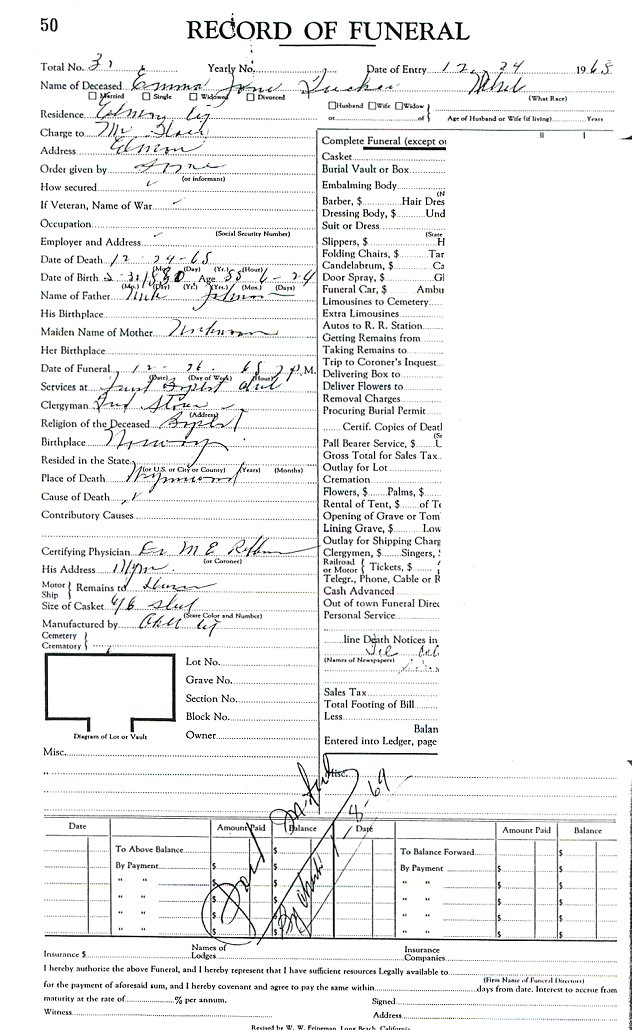 50
RECORD OF FUNERAL
Total No. 31 Yearly No. Date of Entry 12 24 1968
Name of Deceased Emma Jane Tucker
(What Race)
Married Single Widowed Divorced
Husband Wife Widow
or of Age of Husband or Wife (if living) Years
Residence
Charge to Mr
Address
Order given by
(or informant)
How secured
If Veteran, Name of War
Occupation
(Social Security Number)
Employer and Address
Date of Death 12-24-68
(Mo.) (Day) (Yr.) (Hour)
Date of Birth 1880 Age 88-6-24
(Mo.) (Day) (Yr.) (Yrs.) (Mos.) (Days)
Name of Father Johnson
His Birthplace
Maiden Name of Mother Unknown
Her Birthplace
Date of Funeral 12 26 68 2 P.M.
(Date) (Day of Week) (Hour)
Services at First Baptist
Clergyman
(Address)
Religion of the Deceased Baptist
Birthplace
Resided in the State
(or U.S. or City or County) (Years) (Months)
Place of Death Wynnewood
Cause of Death
Contributory Causes
Certifying Physician Dr M E
(or Coroner)
His Address
Motor Ship Remains to
Size of Casket 6/6 steel
(State Color and Number)
Manufactured by
Cemetery
Crematory
Diagram of Lot or Vault
Lot No.
Grave No.
Section No.
Block No.
Owner
Misc.
Complete Funeral (except o
Casket
Burial Vault or Box
Embalming Body
(N
Barber, $ Hair Dres
Dressing Body, $ Und
Suit or Dress
(State
Slippers, $ H
Folding Chairs, $ Tar
Candelabrum, $ Ca
Door Spray, $ Gl
Funeral Car, $ Ambu
Limousines to Cemetery
Extra Limousines
Autos to R. R. Station
Getting Remains from
Taking Remains to
Trip to Coroner's Inquest
Delivering Box to
Deliver Flowers to
Removal Charges
Procuring Burial Permit
Certif. Copies of Deat
(St
Pall Bearer Service, $ U
Gross Total for Sales Tax
Outlay for Lot
Cremation
Flowers, $ Palms, $
Rental of Tent, $ of Te
Opening of Grave or Tom
Lining Grave, $ Low
Outlay for Shipping Charg
Clergymen, $ Singers, $
Railroad or Motor Tickets, $
Telegr., Phone, Cable or R
Cash Advanced
Out of town Funeral Direc
Personal Service
line Death Notices in
(Names of Newspapers)
Sales Tax
Total Footing of Bill
Less
Balan
Entered into Ledger, page
Misc.
Date Amount Paid Balance Date Amount Paid Balance
To Above Balance $ To Balance Forward $
By Payment $ $ By Payment $ $
" " $ $ " " $ $
" " $ $ " " $ $
" " $ $ " " $ $
" " $ $ " " $ $
Paid in full
By check 1-8-69
Insurance $ Names of Lodges Insurance Companies
I hereby authorize the above Funeral, and I hereby represent that I have sufficient resources Legally available to
(Firm Name of Funeral Directors)
for the payment of aforesaid sum, and I hereby covenant and agree to pay the same within days from date. Interest to accrue from
maturity at the rate of % per annum. Signed
Witness Address
Revised by W. W. Feineman, Long Beach, California